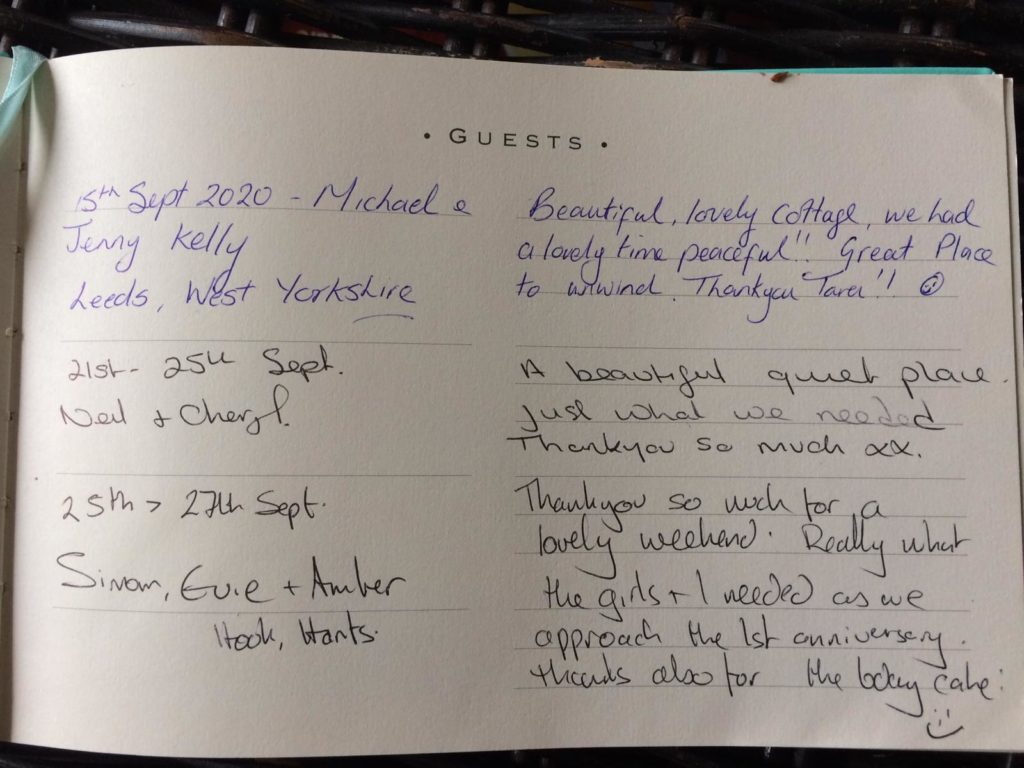 • GUESTS •
15th Sept 2020 - Michael &
Jenny Kelly
Leeds, West Yorkshire
Beautiful, lovely cottage, we had
a lovely time peaceful!! Great Place
to unwind. Thankyou Tara!! ☺
21st - 25th Sept.
Neil + Cheryl.
A beautiful quiet place.
Just what we needed
Thankyou so much xx.
25th > 27th Sept.
Simon, Evie + Amber
Hook, Hants.
Thankyou so much for a
lovely weekend. Really what
the girls + I needed as we
approach the 1st anniversary.
thanks also for the cake :